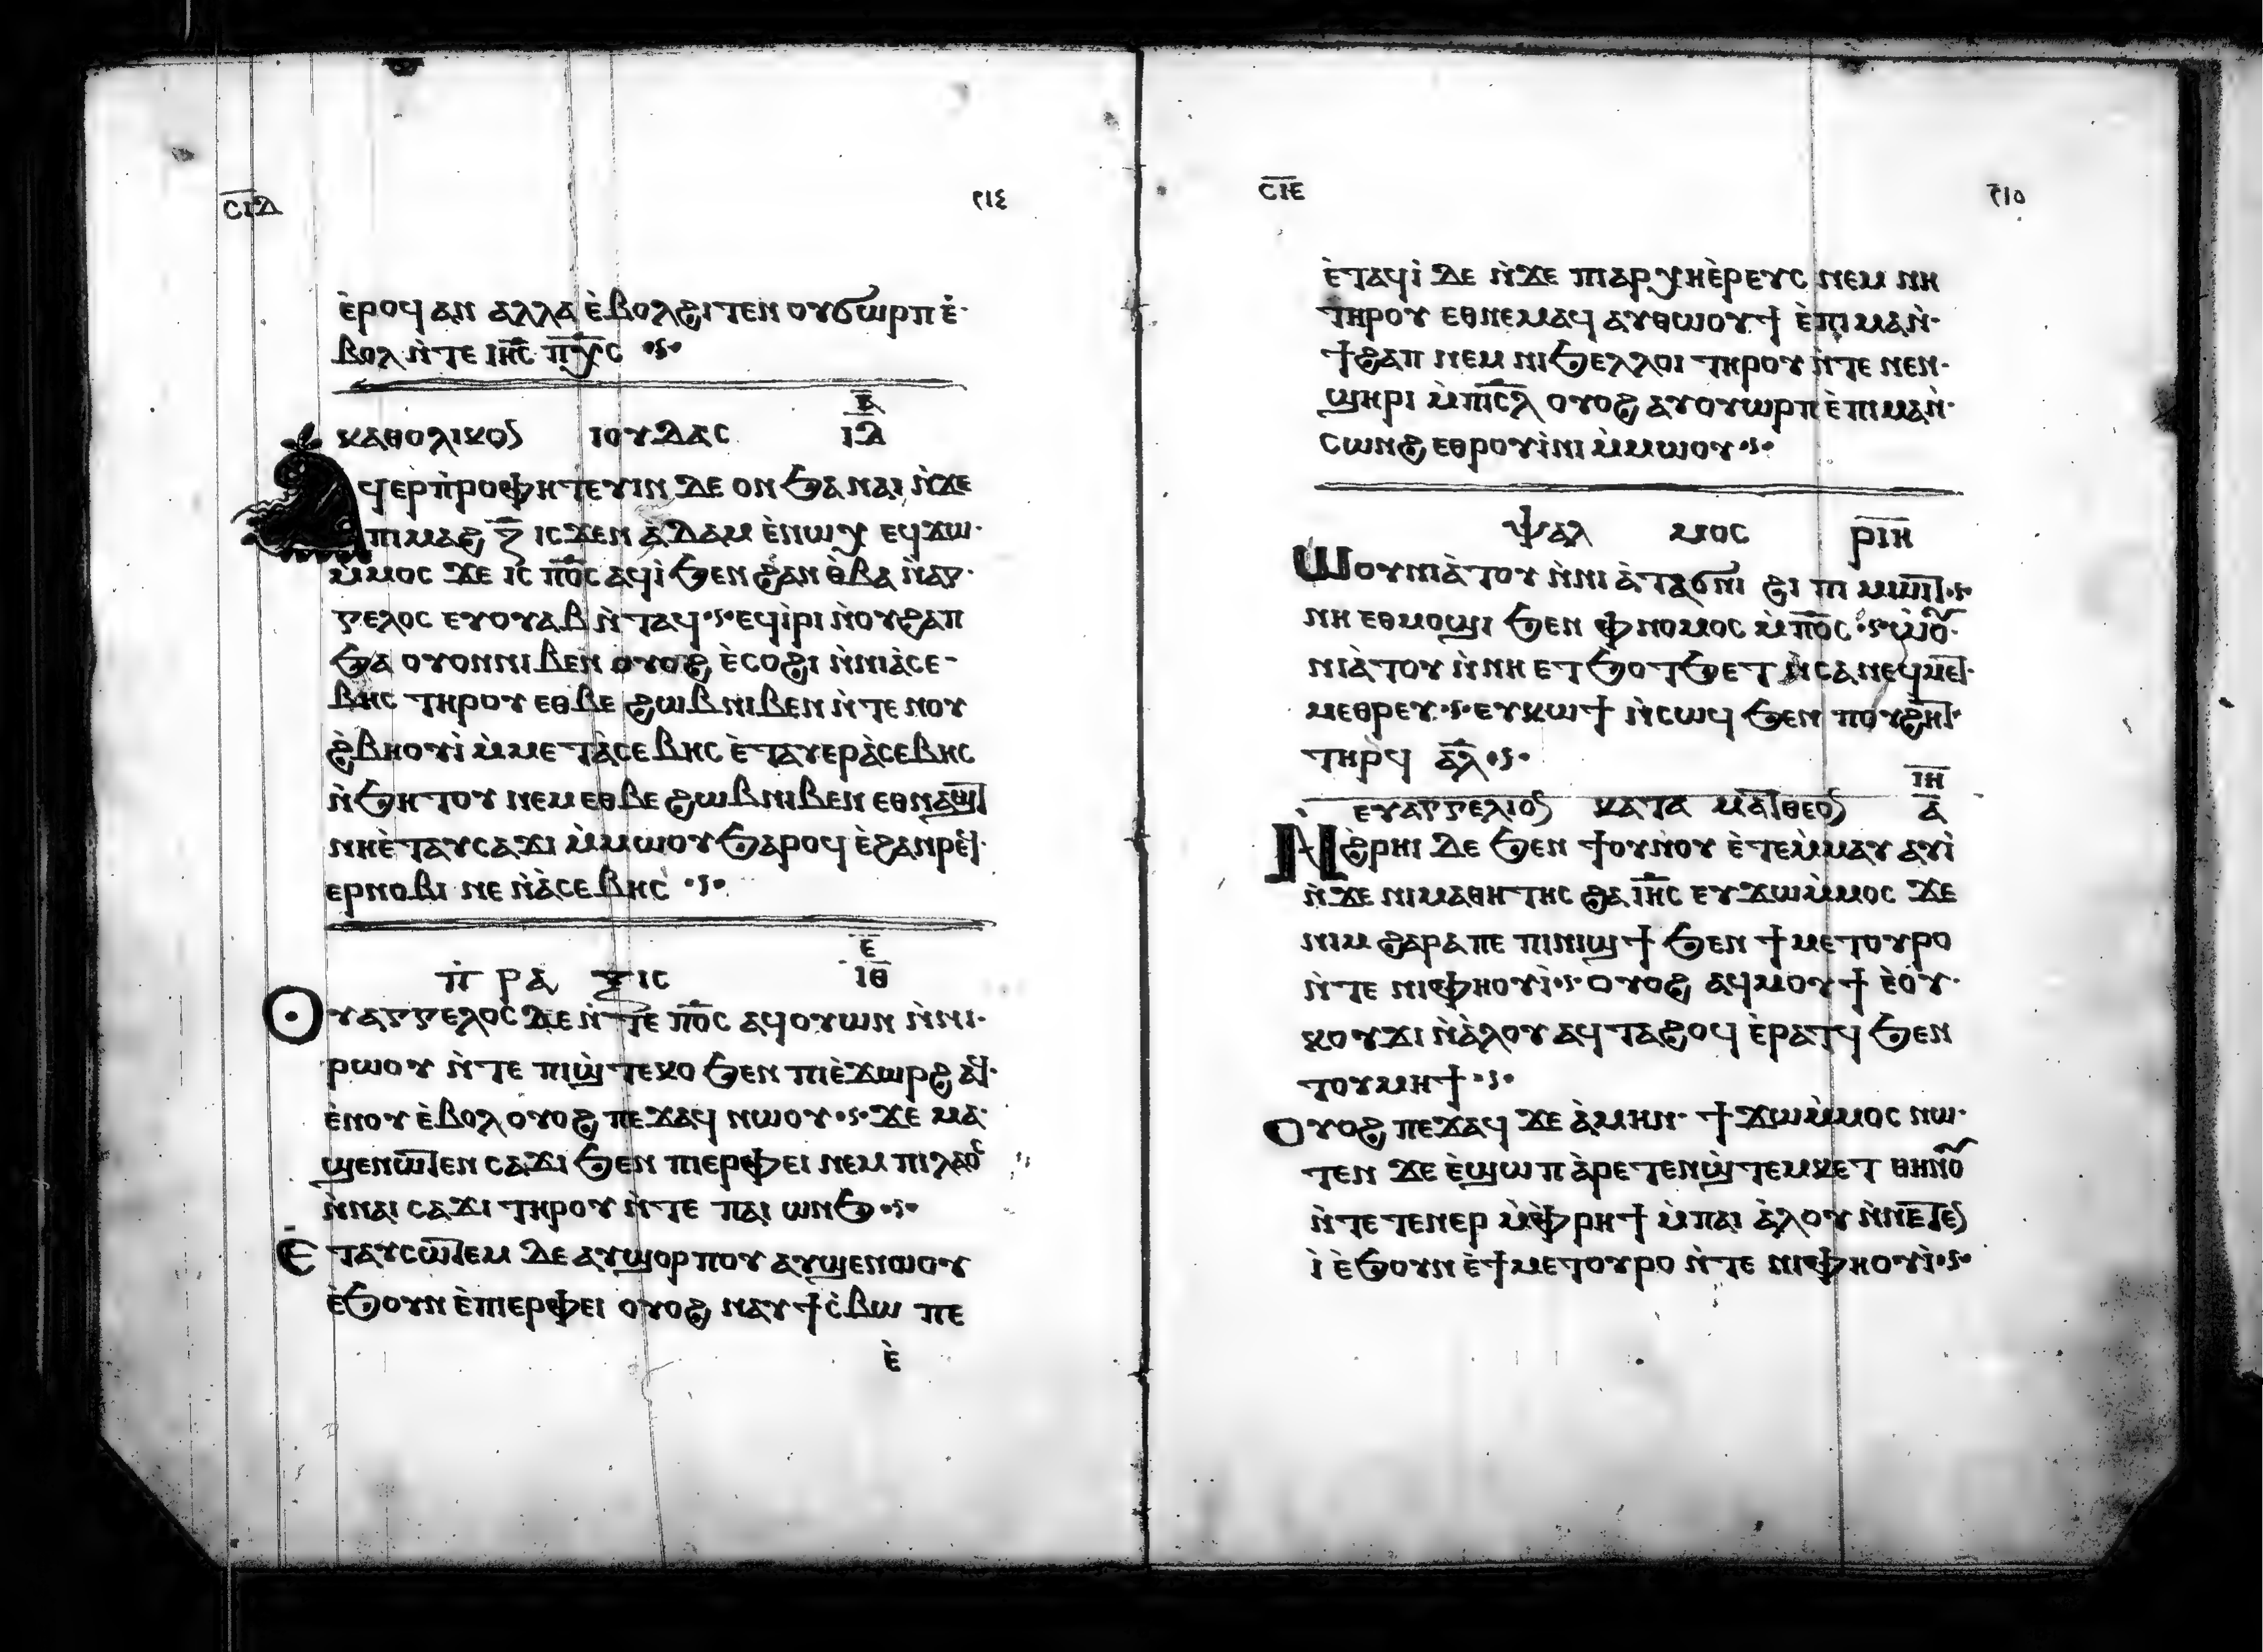 ⲥⲓⲇ ٢١٤
ⲉ̀ⲣⲟϥ ⲁⲛ ⲁⲗⲗⲁ ⲉ̀ⲃⲟⲗϩⲓⲧⲉⲛ ⲟⲩϭⲱⲣⲡ ⲉ̀
ⲃⲟⲗ ⲛ̀ⲧⲉ ⲓⲏ̅ⲥ̅ ⲡⲭ̅ⲥ̅
ⲕⲁⲑⲟⲗⲓⲕⲟⲥ ⲓⲟⲩⲇⲁⲥ ⲓ̅ⲇ̅
ⲁϥⲉⲣⲡ̀ⲣⲟⲫⲏⲧⲉⲩⲓⲛ ⲇⲉ ⲟⲛ ϧⲁ ⲛⲁⲓ ⲛ̀ϫⲉ
ⲡⲓⲙⲁϩ ⲍ̅ ⲓⲥϫⲉⲛ ⲁ̀ⲇⲁⲙ ⲉ̀ⲛⲱⲭ ⲉϥϫⲱ
ⲙ̀ⲙⲟⲥ ϫⲉ ⲓⲥ ⲡⲟ̅ⲥ̅ ⲁϥⲓ̀ ϧⲉⲛ ϩⲁⲛ ⲑ̀ⲃⲁ ⲛ̀ⲁⲅ
ⲅⲉⲗⲟⲥ ⲉⲩⲟⲩⲁⲃ ⲛ̀ⲧⲁϥ ⲉϥⲓ̀ⲣⲓ ⲛ̀ⲟⲩϩⲁⲡ
ϧⲁ ⲟⲩⲟⲛⲛⲓⲃⲉⲛ ⲟⲩⲟϩ ⲉ̀ⲥⲟϩⲓ ⲛ̀ⲛⲓⲁ̀ⲥⲉ
ⲃⲏⲥ ⲧⲏⲣⲟⲩ ⲉⲑⲃⲉ ϩⲱⲃⲛⲓⲃⲉⲛ ⲛ̀ⲧⲉ ⲛⲟⲩ
ϩ̀ⲃⲏⲟⲩⲓ̀ ⲙ̀ⲙⲉⲧⲁ̀ⲥⲉⲃⲏⲥ ⲉ̀ⲧⲁⲩⲉⲣⲁ̀ⲥⲉⲃⲏⲥ
ⲛ̀ϧⲏⲧⲟⲩ ⲛⲉⲙ ⲉⲑⲃⲉ ϩⲱⲃⲛⲓⲃⲉⲛ ⲉⲑⲛⲁϣⲧ̅
ⲛⲏⲉ̀ⲧⲁⲩⲥⲁϫⲓ ⲙ̀ⲙⲱⲟⲩ ϧⲁⲣⲟϥ ⲉ̀ϩⲁⲛⲣⲉϥ
ⲉⲣⲛⲟⲃⲓ ⲛⲉ ⲛ̀ⲁ̀ⲥⲉⲃⲏⲥ
ⲡ̀ⲣⲁⲝⲓⲥ ⲉ̅ ⲓ̅ⲑ̅
ⲟⲩⲁⲅⲅⲉⲗⲟⲥ ⲇⲉ ⲛ̀ⲧⲉ ⲡⲟ̅ⲥ̅ ⲁϥⲟⲩⲱⲛ ⲛ̀ⲛⲓ
ⲣⲱⲟⲩ ⲛ̀ⲧⲉ ⲡⲓϣ̀ⲧⲉⲕⲟ ϧⲉⲛ ⲡⲓⲉ̀ϫⲱⲣϩ ⲁϥ
ⲉ̀ⲛⲟⲩ ⲉ̀ⲃⲟⲗ ⲟⲩⲟϩ ⲡⲉϫⲁϥ ⲛⲱⲟⲩ ϫⲉ ⲙⲁ
ϣⲉⲛⲱⲧⲉⲛ ⲥⲁϫⲓ ϧⲉⲛ ⲡⲓⲉⲣⲫⲉⲓ ⲛⲉⲙ ⲡⲓⲗⲁⲟⲥ
ⲛ̀ⲛⲁⲓ ⲥⲁϫⲓ ⲧⲏⲣⲟⲩ ⲛ̀ⲧⲉ ⲡⲁⲓ ⲱⲛϧ
ⲉ̀ⲧⲁⲩⲥⲱⲧⲉⲙ ⲇⲉ ⲁⲩϣⲟⲣⲡⲟⲩ ⲁⲩϣⲉⲛⲱⲟⲩ
ⲉ̀ϧⲟⲩⲛ ⲉ̀ⲡⲓⲉⲣⲫⲉⲓ ⲟⲩⲟϩ ⲛⲁⲩϯⲥ̀ⲃⲱ ⲡⲉ
ⲉ̀
ⲥⲓⲉ ٢١٥
ⲉ̀ⲧⲁϥⲓ̀ ⲇⲉ ⲛ̀ϫⲉ ⲡⲓⲁⲣⲭⲏⲉ̀ⲣⲉⲩⲥ ⲛⲉⲙ ⲛⲏ
ⲧⲏⲣⲟⲩ ⲉⲑⲛⲉⲙⲁϥ ⲁⲩⲑⲱⲟⲩϯ ⲉ̀ⲡⲓⲙⲁⲛ̀
ϯϩⲁⲡ ⲛⲉⲙ ⲛⲓϧⲉⲗⲗⲟⲓ ⲧⲏⲣⲟⲩ ⲛ̀ⲧⲉ ⲛⲉⲛ
ϣⲏⲣⲓ ⲙ̀ⲡⲓⲥ̅ⲗ̅ ⲟⲩⲟϩ ⲁⲩⲟⲩⲱⲣⲡ ⲉ̀ⲡⲓⲙⲁⲛ̀
ⲥⲱⲛϩ ⲉⲑⲣⲟⲩⲓ̀ⲛⲓ ⲙ̀ⲙⲱⲟⲩ
ⲯⲁⲗⲙⲟⲥ ⲣ̅ⲓ̅ⲏ̅
ⲱⲟⲩⲛⲓⲁ̀ⲧⲟⲩ ⲛ̀ⲛⲓⲁ̀ⲧⲁϭⲛⲓ ϩⲓ ⲡⲓ ⲙⲱⲓⲧ
ⲛⲏ ⲉⲑⲙⲟϣⲓ ϧⲉⲛ ⲫⲛⲟⲙⲟⲥ ⲙ̀ⲡⲟ̅ⲥ̅ ⲱ̀ⲟⲩ
ⲛⲓⲁ̀ⲧⲟⲩ ⲛ̀ⲛⲏ ⲉⲧϧⲟⲧϧⲉⲧ ⲛ̀ⲥⲁ ⲛⲉϥⲙⲉⲧ
ⲙⲉⲑⲣⲉⲩ ⲉⲩⲕⲱϯ ⲛ̀ⲥⲱϥ ϧⲉⲛ ⲡⲟⲩϩⲏⲧ
ⲧⲏⲣϥ ⲁ̅ⲗ̅
ⲉⲩⲁⲅⲅⲉⲗⲓⲟⲥ ⲕⲁⲧⲁ ⲙⲁⲧⲑⲉⲟⲥ ⲓ̅ⲏ̅ ⲁ̅
ⲛ̀ϩ̀ⲣⲏⲓ ⲇⲉ ϧⲉⲛ ϯⲟⲩⲛⲟⲩ ⲉ̀ⲧⲉⲙ̀ⲙⲁⲩ ⲁⲩⲓ̀
ⲛ̀ϫⲉ ⲛⲓⲙⲁⲑⲏⲧⲏⲥ ϩⲁ ⲓⲏ̅ⲥ̅ ⲉⲩϫⲱⲙ̀ⲙⲟⲥ ϫⲉ
ⲛⲓⲙ ϩⲁⲣⲁ ⲡⲉ ⲡⲓⲛⲓϣϯ ϧⲉⲛ ϯⲙⲉⲧⲟⲩⲣⲟ
ⲛ̀ⲧⲉ ⲛⲓⲫⲏⲟⲩⲓ̀ ⲟⲩⲟϩ ⲁϥⲙⲟⲩϯ ⲉ̀ⲟⲩ
ⲕⲟⲩϫⲓ ⲛ̀ⲁ̀ⲗⲟⲩ ⲁϥⲧⲁϩⲟϥ ⲉ̀ⲣⲁⲧϥ ϧⲉⲛ
ⲧⲟⲩⲙⲏϯ
ⲟⲩⲟϩ ⲡⲉϫⲁϥ ϫⲉ ⲁ̀ⲙⲏⲛ ϯϫⲱⲙ̀ⲙⲟⲥ ⲛⲱ
ⲧⲉⲛ ϫⲉ ⲉ̀ϣⲱⲡ ⲁ̀ⲣⲉⲧⲉⲛϣ̀ⲧⲉⲙⲕⲉⲧ ⲑⲏⲛⲟⲩ
ⲛ̀ⲧⲉⲧⲉⲛⲉⲣ ⲙ̀ⲫ̀ⲣⲏϯ ⲙ̀ⲡⲁⲓ ⲁ̀ⲗⲟⲩ ⲛ̀ⲛⲉⲧⲉⲥ
ⲓ̀ ⲉ̀ϧⲟⲩⲛ ⲉ̀ϯⲙⲉⲧⲟⲩⲣⲟ ⲛ̀ⲧⲉ ⲛⲓⲫⲏⲟⲩⲓ̀